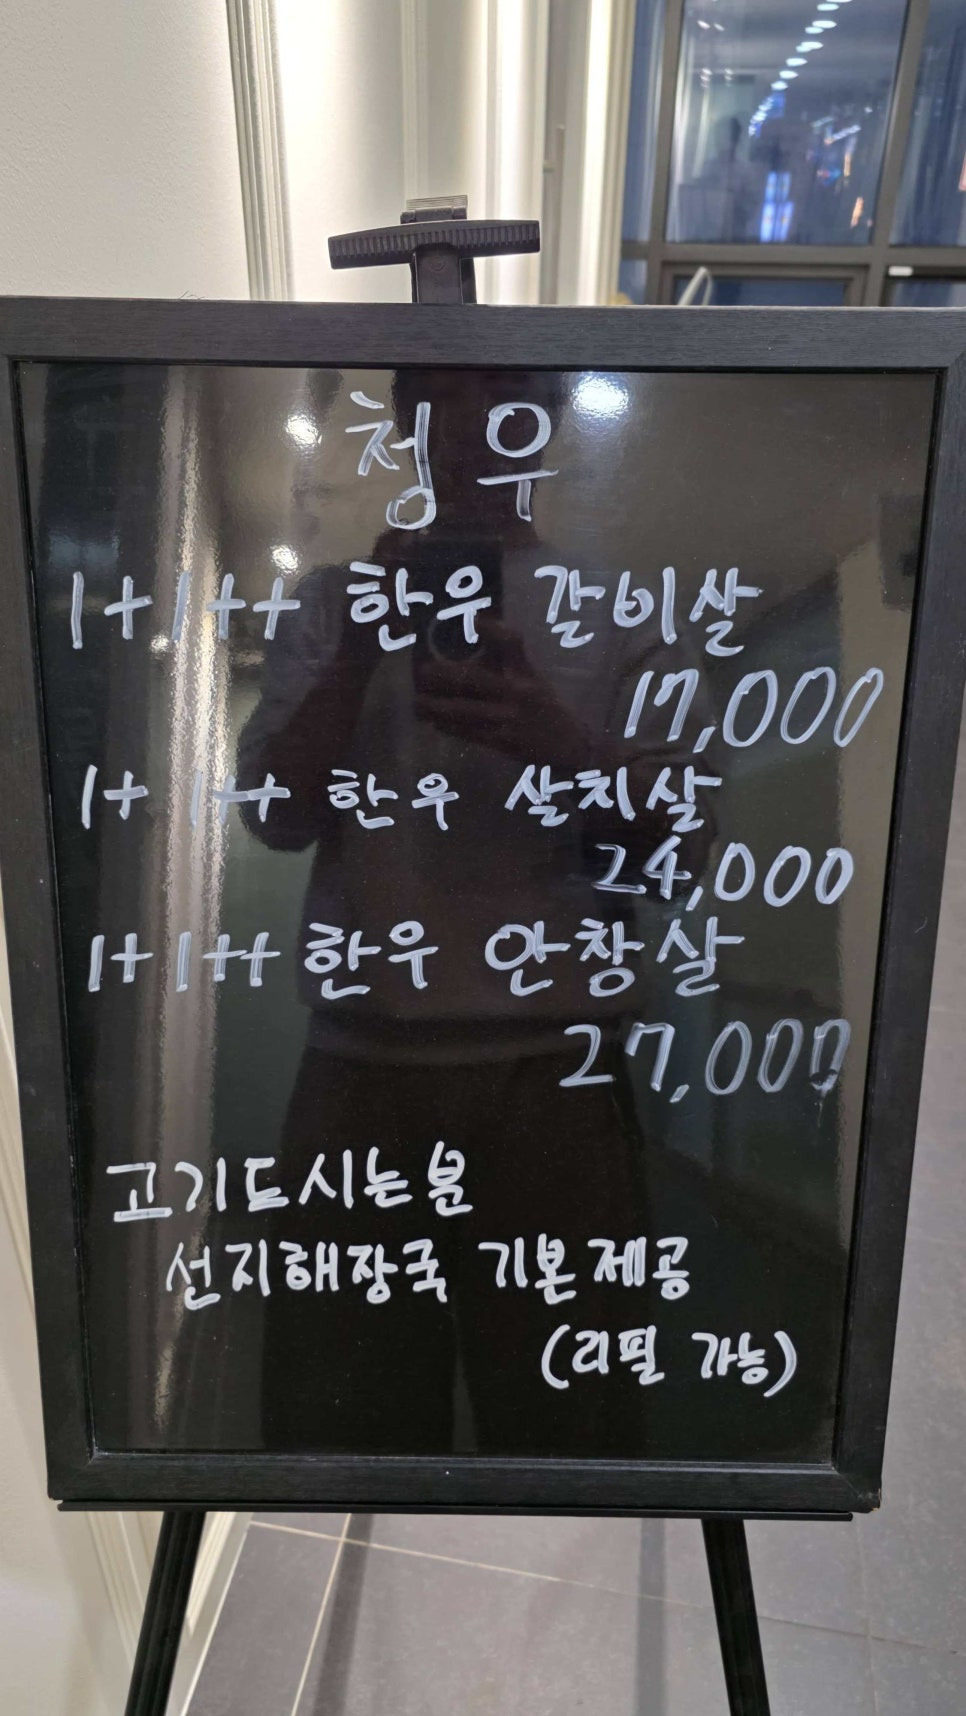 청우
1+ 1++ 한우 갈비살
17,000
1+ 1++ 한우 살치살
24,000
1+ 1++ 한우 안창살
27,000
고기드시는분
선지해장국 기본제공
(리필 가능)